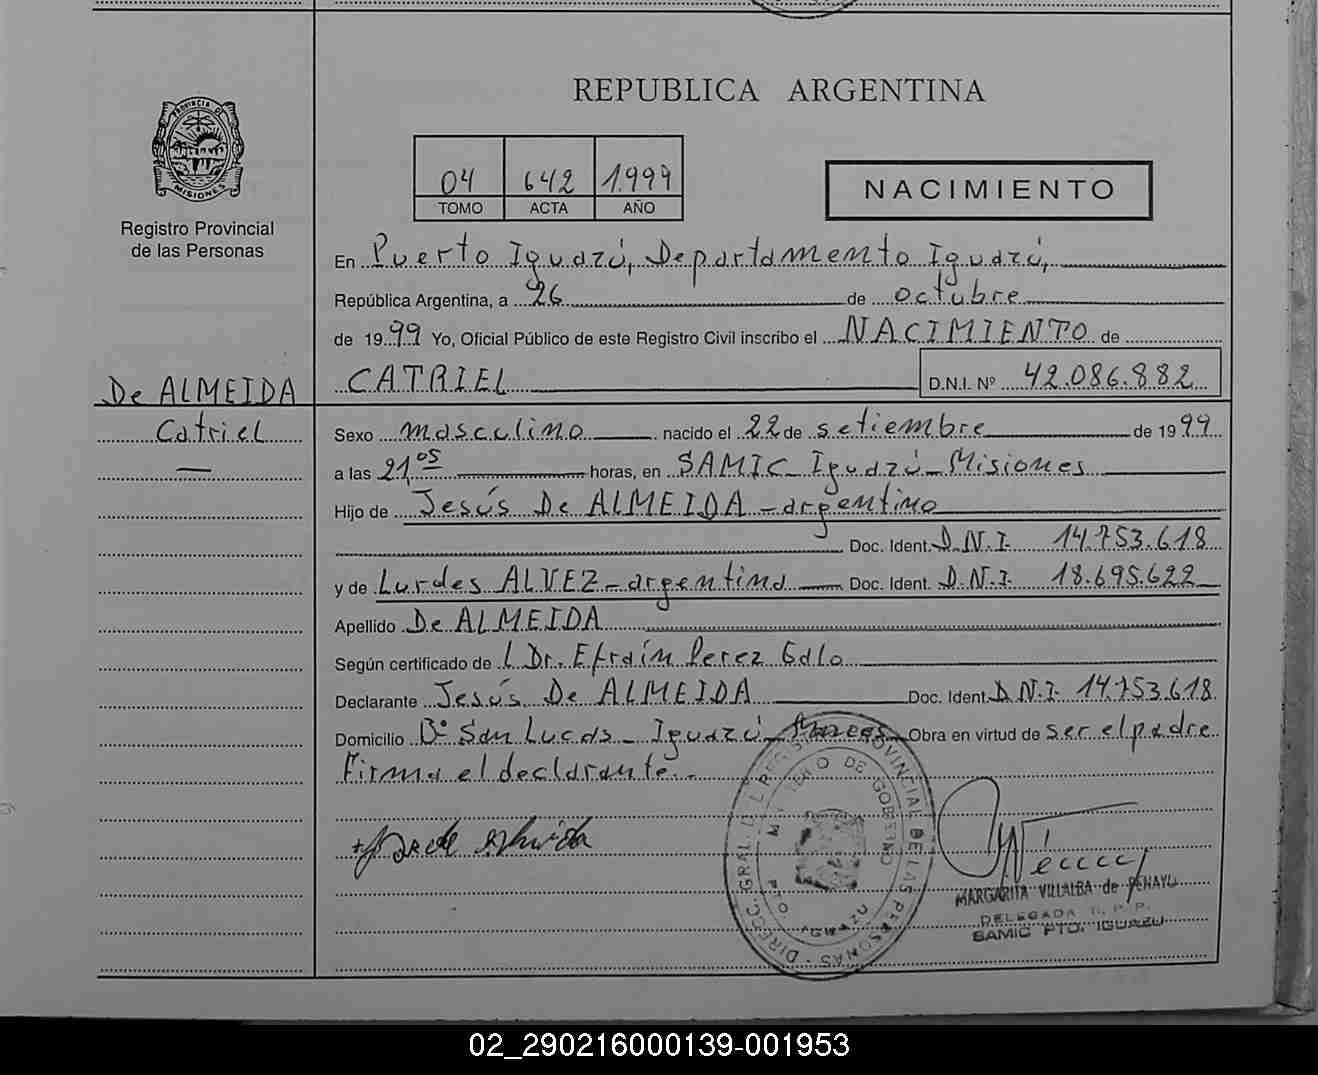 REPUBLICA ARGENTINA
PROVINCIA DE
MISIONES
Registro Provincial
de las Personas
04 642 1.999
TOMO ACTA AÑO
NACIMIENTO
En Puerto Iguazú, Departamento Iguazú,
República Argentina, a 26 de octubre
de 1999 Yo, Oficial Público de este Registro Civil inscribo el NACIMIENTO de
CATRIEL D.N.I. Nº 42.086.882
De ALMEIDA
Catriel
Sexo masculino nacido el 22 de setiembre de 1999
a las 21,05 horas, en SAMIC - Iguazú - Misiones
Hijo de Jesús De ALMEIDA - argentino
Doc. Ident. D.N.I. 14.753.618
y de Lurdes ALVEZ - argentina Doc. Ident. D.N.I. 18.695.622
Apellido De ALMEIDA
Según certificado de l Dr. Efraín Perez Galo
Declarante Jesús De ALMEIDA Doc. Ident. D.N.I. 14.753.618
Domicilio Bº San Lucas - Iguazú - Obra en virtud de ser el padre
Firma el declarante.
DIRECC. GRAL. DEL REGISTRO PROVINCIAL DE LAS PERSONAS
MINISTERIO DE GOBIERNO
PTO. IGUAZU
MARGARITA VILLALBA de PENAYO
DELEGADA R. P. P.
SAMIC PTO. IGUAZU
02_290216000139-001953